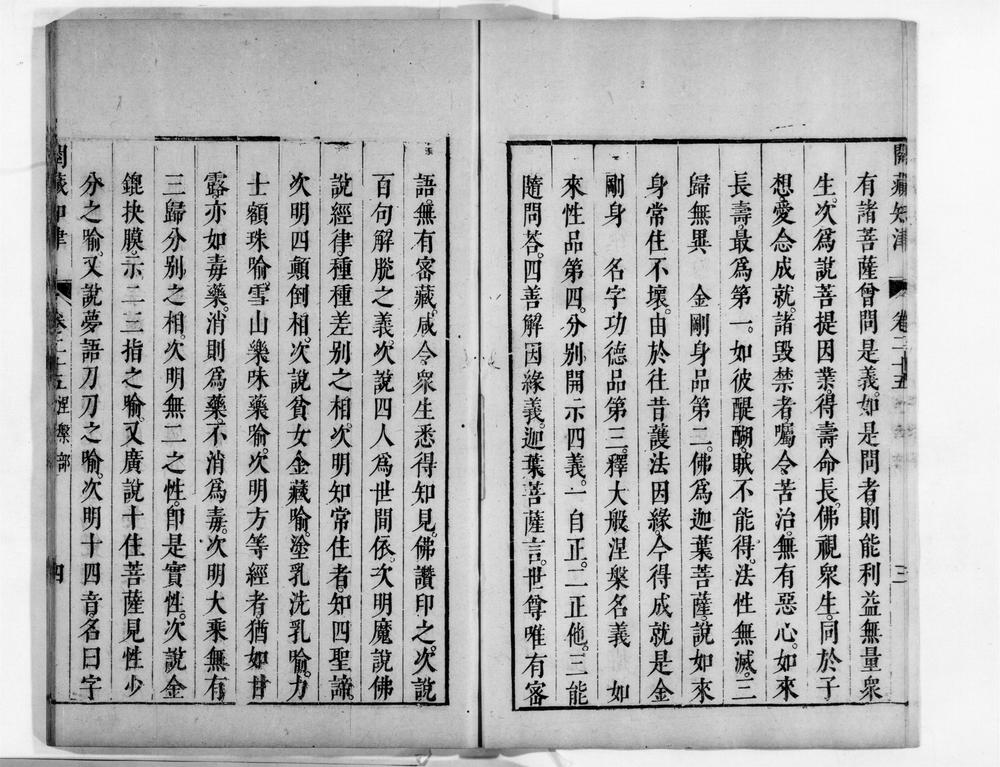 閱藏知津 卷二十五 三
有諸菩薩曾問是義。如是問者。則能利益無量衆
生。次爲說菩提因業。得壽命長。佛視衆生。同於子
想。愛念成就。諸毀禁者。囑令苦治。無有惡心。如來
長壽。最爲第一。如彼醍醐。賊不能得。法性無滅。三
歸無異　金剛身品第二。佛爲迦葉菩薩。說如來
身常住不壞。由於往昔護法因緣。今得成就是金
剛身　名字功德品第三。釋大般涅槃名義　如
來性品第四。分別開示四義。一自正。二正他。三能
隨問荅。四善解因緣義。迦葉菩薩言。世尊唯有密
語。無有密藏。咸令衆生悉得知見。佛讚印之。次說
百句解脫之義。次說四人爲世間依。次明魔說佛
說經律。種種差別之相。次明知常住者。知四聖諦。
次明四顛倒相。次說貧女金藏喻。塗乳洗乳喻。力
士額珠喻。雪山樂味藥喻。次明方等經者。猶如甘
露。亦如毒藥。消則爲藥。不消爲毒。次明大乘。無有
三歸分別之相。次明無二之性。卽是實性。次說金
錍抉膜。示二三指之喻。又廣說十住菩薩見性少
分之喻。又說夢語刀刀之喻。次明十四音。名曰字
閱藏知津 卷二十五 涅槃部 四